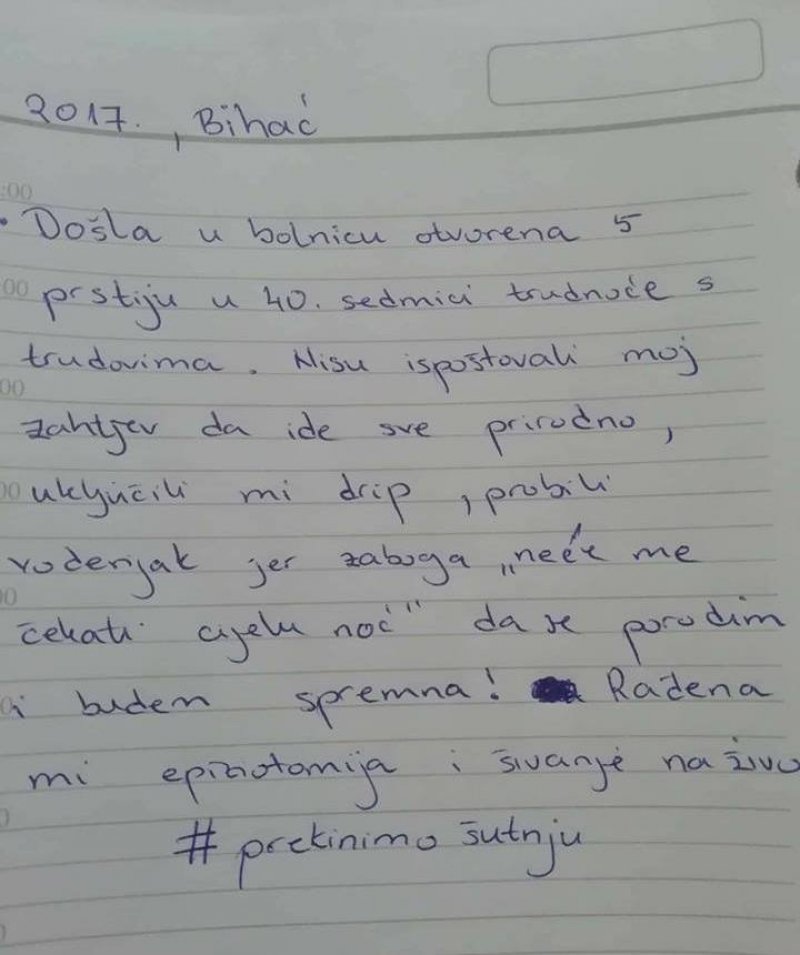 2017. , Bihać
:00
• Došla u bolnicu otvorena 5
00 prstiju u 40. sedmici trudnoće s
trudovima. Nisu ispoštovali moj
00
zahtjev da ide sve prirodno,
00 uključili mi drip, probili
vodenjak jer zaboga „neće me
00
čekati cijelu noć" da se porodim
i budem spremna! Rađena
mi epiziotomija i šivanje na živo
# prekinimo šutnju